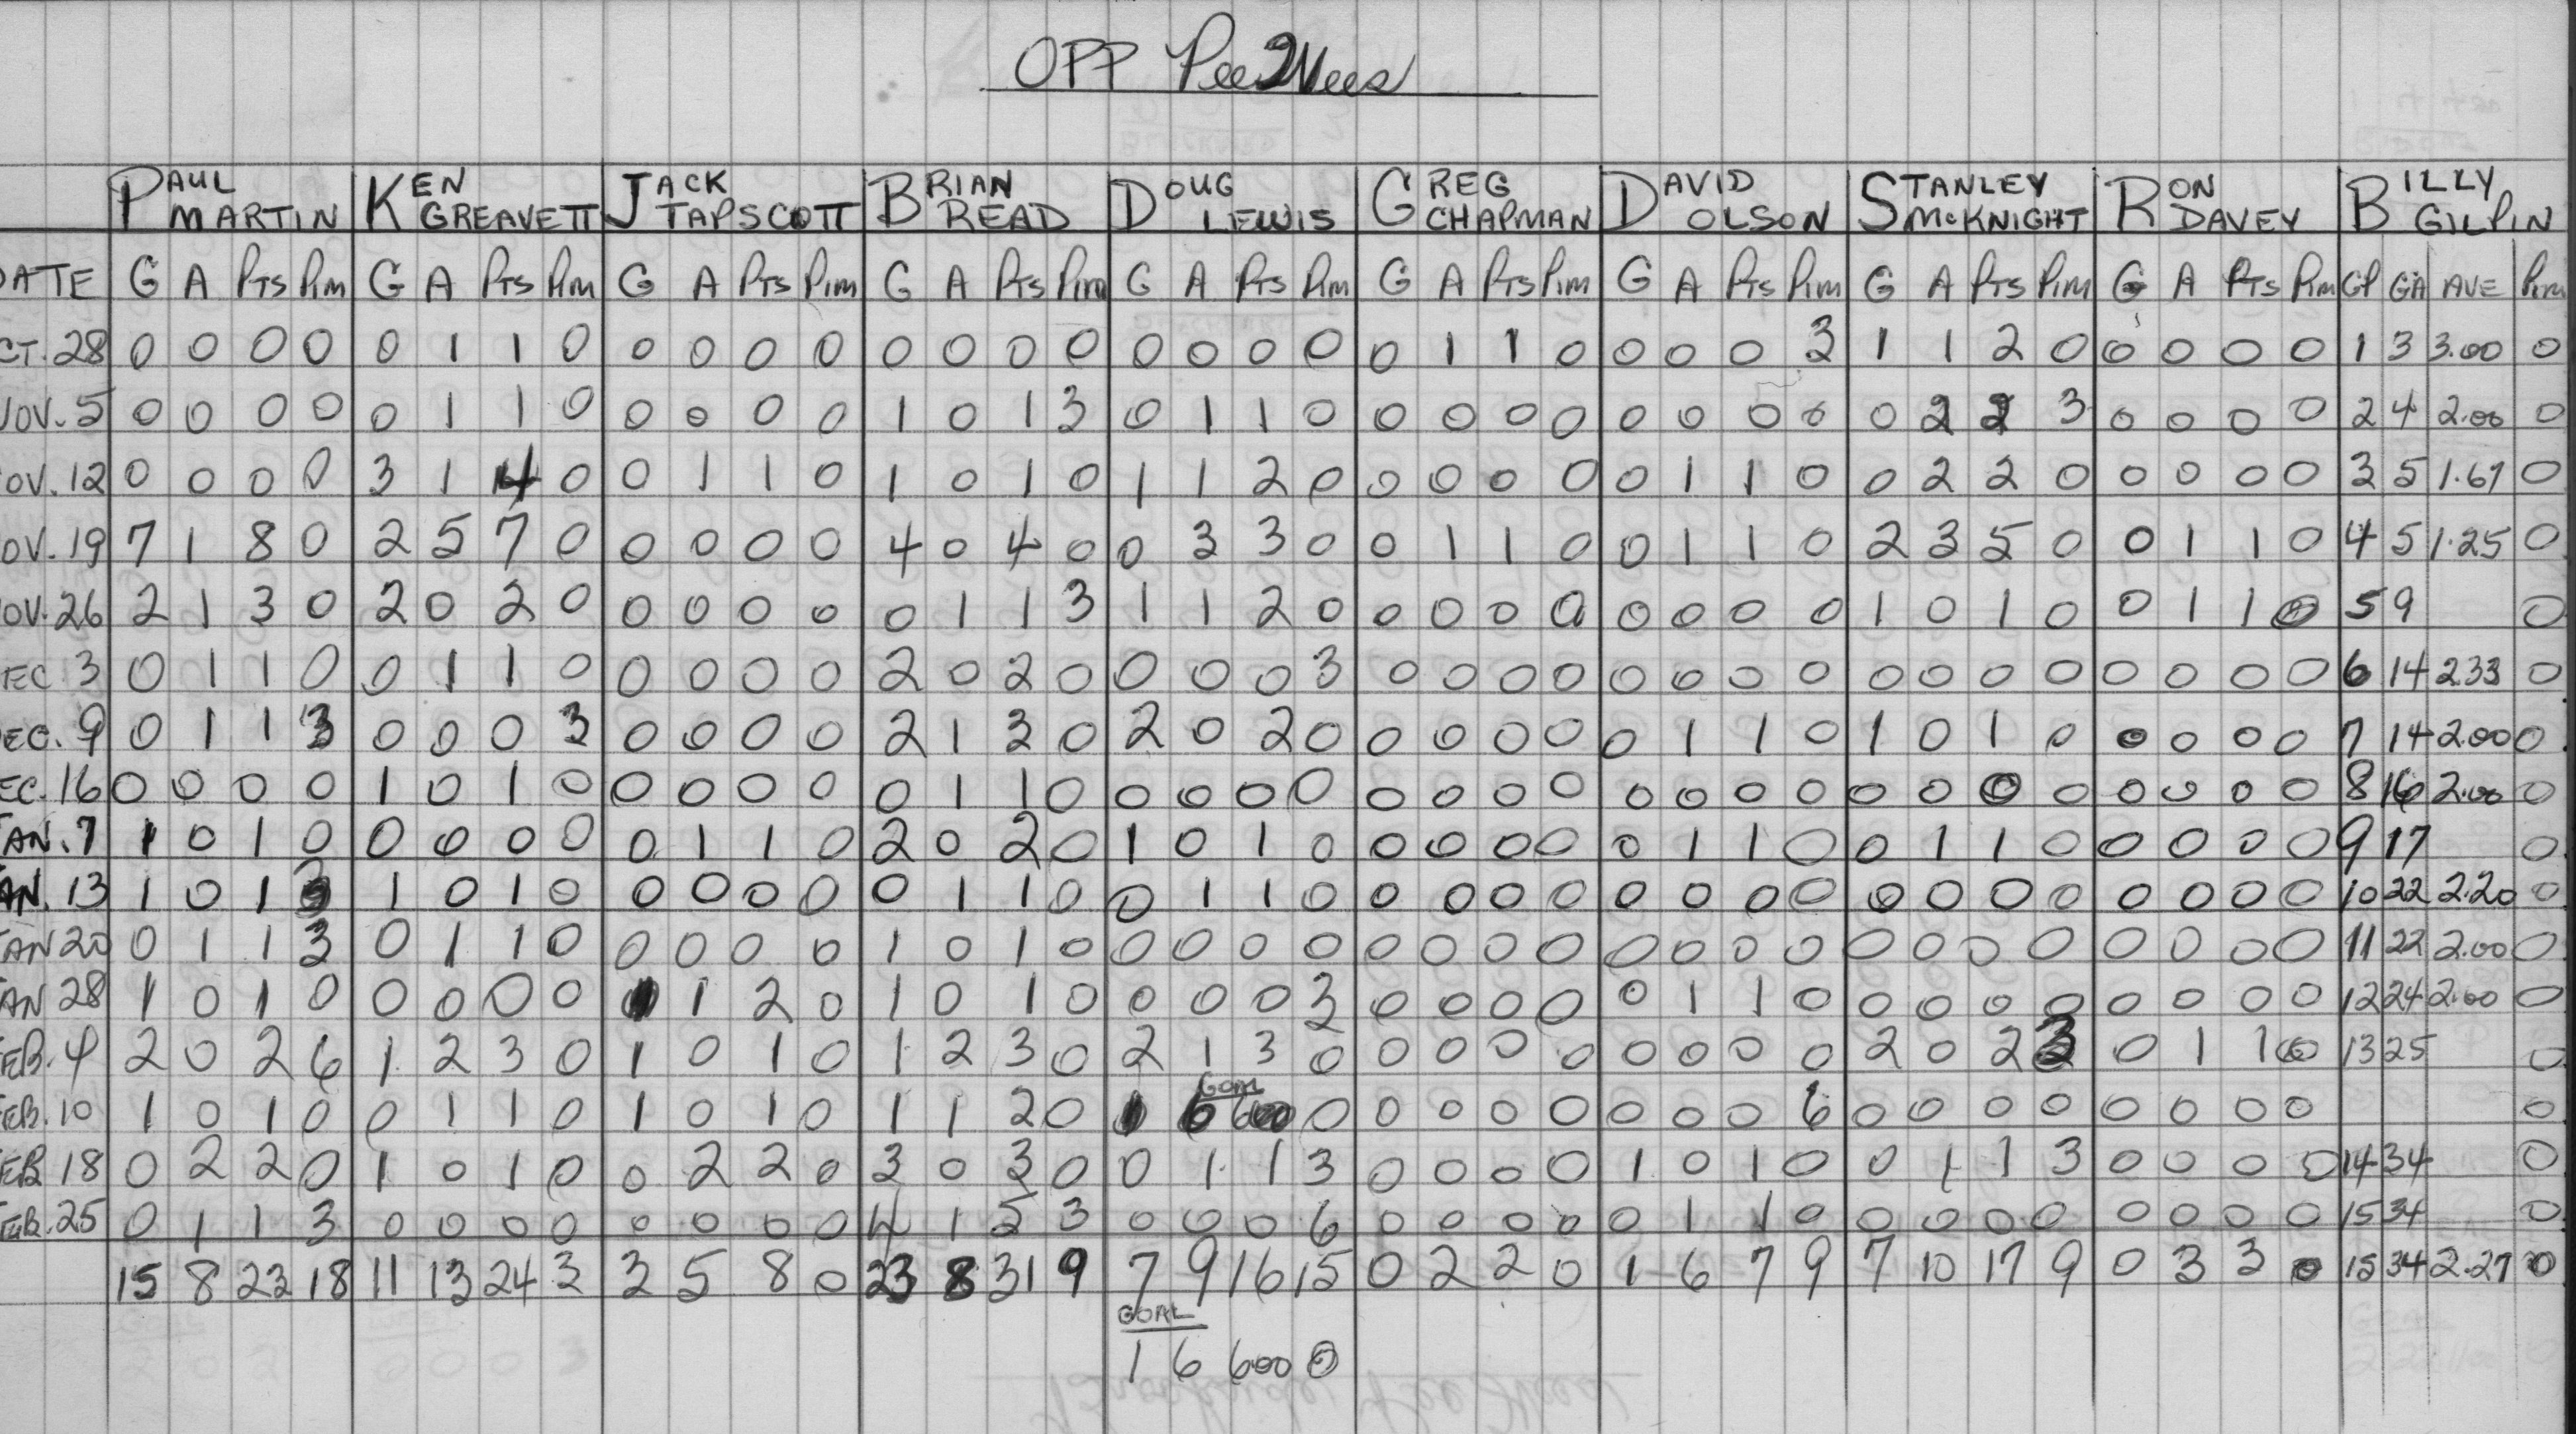 OPP PeeWees
PAUL MARTIN KEN GREAVETT JACK TAPSCOTT BRIAN READ DOUG LEWIS GREG CHAPMAN DAVID OLSON STANLEY McKNIGHT RON DAVEY BILLY GILPIN
DATE G A Pts Pim G A Pts Pim G A Pts Pim G A Pts Pim G A Pts Pim G A Pts Pim G A Pts Pim G A Pts Pim G A Pts Pim GP GA AVE Pim
CT. 28 0 0 0 0 0 1 1 0 0 0 0 0 0 0 0 0 0 0 0 0 0 1 1 0 0 0 0 3 1 1 2 0 0 0 0 0 1 3 3.00 0
NOV. 5 0 0 0 0 0 1 1 0 0 0 0 0 1 0 1 3 0 1 1 0 0 0 0 0 0 0 0 0 0 2 2 3 0 0 0 0 2 4 2.00 0
OV. 12 0 0 0 0 3 1 4 0 0 1 1 0 1 0 1 0 1 1 2 0 0 0 0 0 0 1 1 0 0 2 2 0 0 0 0 0 3 5 1.67 0
OV. 19 7 1 8 0 2 5 7 0 0 0 0 0 4 0 4 0 0 3 3 0 0 1 1 0 0 1 1 0 2 3 5 0 0 1 1 0 4 5 1.25 0
OV. 26 2 1 3 0 2 0 2 0 0 0 0 0 0 1 1 3 1 1 2 0 0 0 0 0 0 0 0 0 1 0 1 0 0 1 1 0 5 9 0
EC 3 0 1 1 0 0 1 1 0 0 0 0 0 2 0 2 0 0 0 0 3 0 0 0 0 0 0 0 0 0 0 0 0 0 0 0 0 6 14 2.33 0
EC. 9 0 1 1 3 0 0 0 3 0 0 0 0 2 1 3 0 2 0 2 0 0 0 0 0 0 1 1 0 1 0 1 0 0 0 0 0 7 14 2.00 0
EC. 16 0 0 0 0 1 0 1 0 0 0 0 0 0 1 1 0 0 0 0 0 0 0 0 0 0 0 0 0 0 0 0 0 0 0 0 0 8 16 2.00 0
AN. 7 1 0 1 0 0 0 0 0 0 1 1 0 2 0 2 0 1 0 1 0 0 0 0 0 0 1 1 0 0 1 1 0 0 0 0 0 9 17 0
AN. 13 1 0 1 3 1 0 1 0 0 0 0 0 0 1 1 0 0 1 1 0 0 0 0 0 0 0 0 0 0 0 0 0 0 0 0 0 10 22 2.20 0
AN 20 0 1 1 3 0 1 1 0 0 0 0 0 1 0 1 0 0 0 0 0 0 0 0 0 0 0 0 0 0 0 0 0 0 0 0 0 11 22 2.00 0
AN 28 1 0 1 0 0 0 0 0 1 1 2 0 1 0 1 0 0 0 0 3 0 0 0 0 0 1 1 0 0 0 0 0 0 0 0 0 12 24 2.00 0
EB. 4 2 0 2 6 1 2 3 0 1 0 1 0 1 2 3 0 2 1 3 0 0 0 0 0 0 0 0 0 2 0 2 3 0 1 1 0 13 25 0
EB. 10 1 0 1 0 0 1 1 0 1 0 1 0 1 1 2 0 GOAL 1 6 600 0 0 0 0 0 0 0 0 6 0 0 0 0 0 0 0 0 0
EB 18 0 2 2 0 1 0 1 0 0 2 2 0 3 0 3 0 0 1 1 3 0 0 0 0 1 0 1 0 0 1 1 3 0 0 0 0 14 34 0
EB. 25 0 1 1 3 0 0 0 0 0 0 0 0 4 1 5 3 0 0 0 6 0 0 0 0 0 1 1 0 0 0 0 0 0 0 0 0 15 34 0
15 8 23 18 11 13 24 3 3 5 8 0 23 8 31 9 7 9 16 15 0 2 2 0 1 6 7 9 7 10 17 9 0 3 3 0 15 34 2.27 0
GOAL
1 6 6.00 0